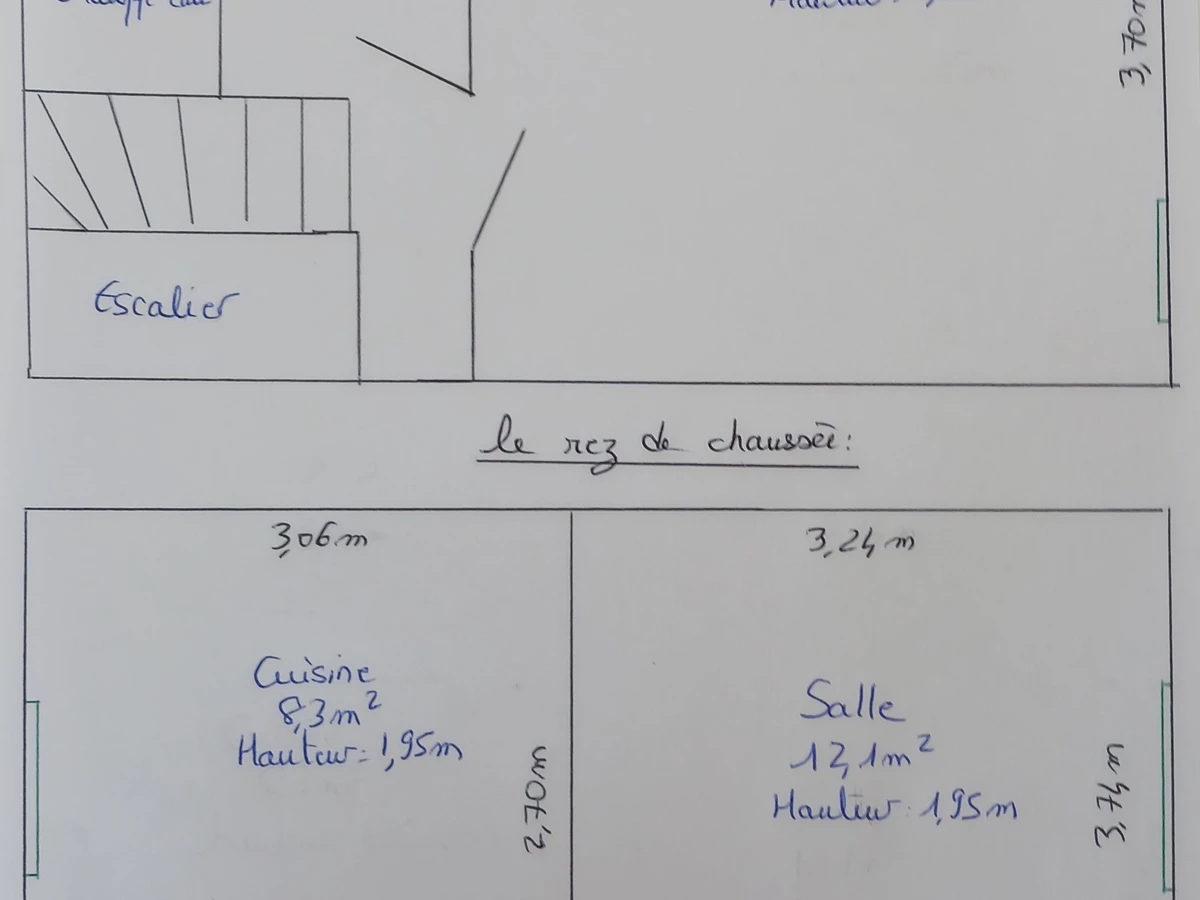 3,70m
Escalier
le rez de chaussée:
3,06m
3,24m
Cuisine
8,3m²
Hauteur: 1,95m
2,70m
Salle
12,1m²
Hauteur: 1,95m
3,74m